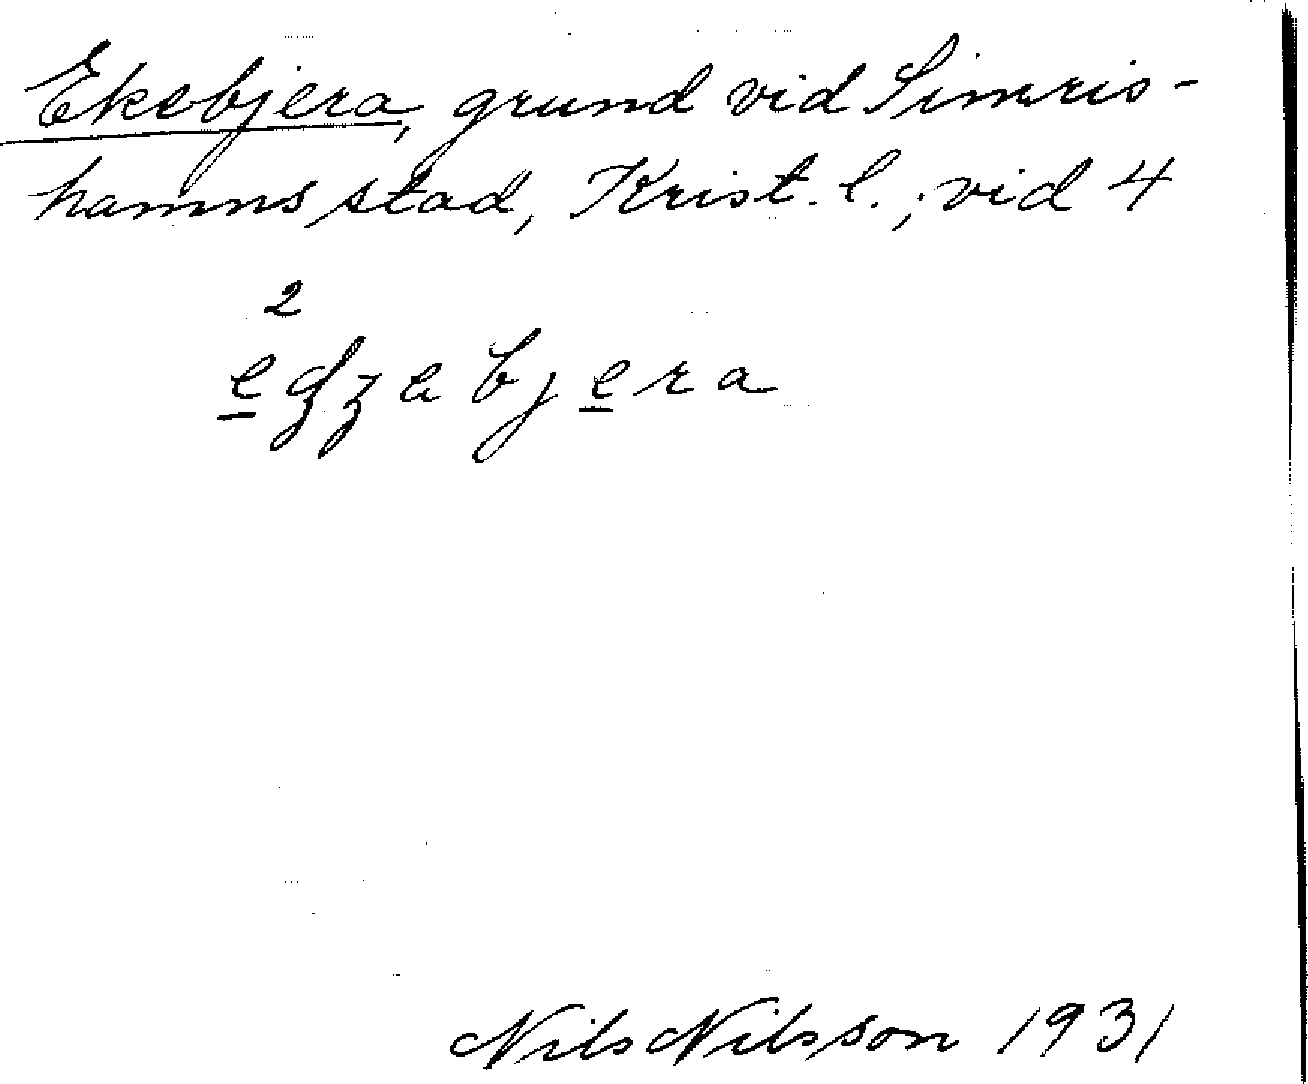 Ekebjera, grund vid Simris-
hamns stad, Krist. l.; vid 4
2
e̲ɖʒabje̲ra
Nils Nilsson 1931